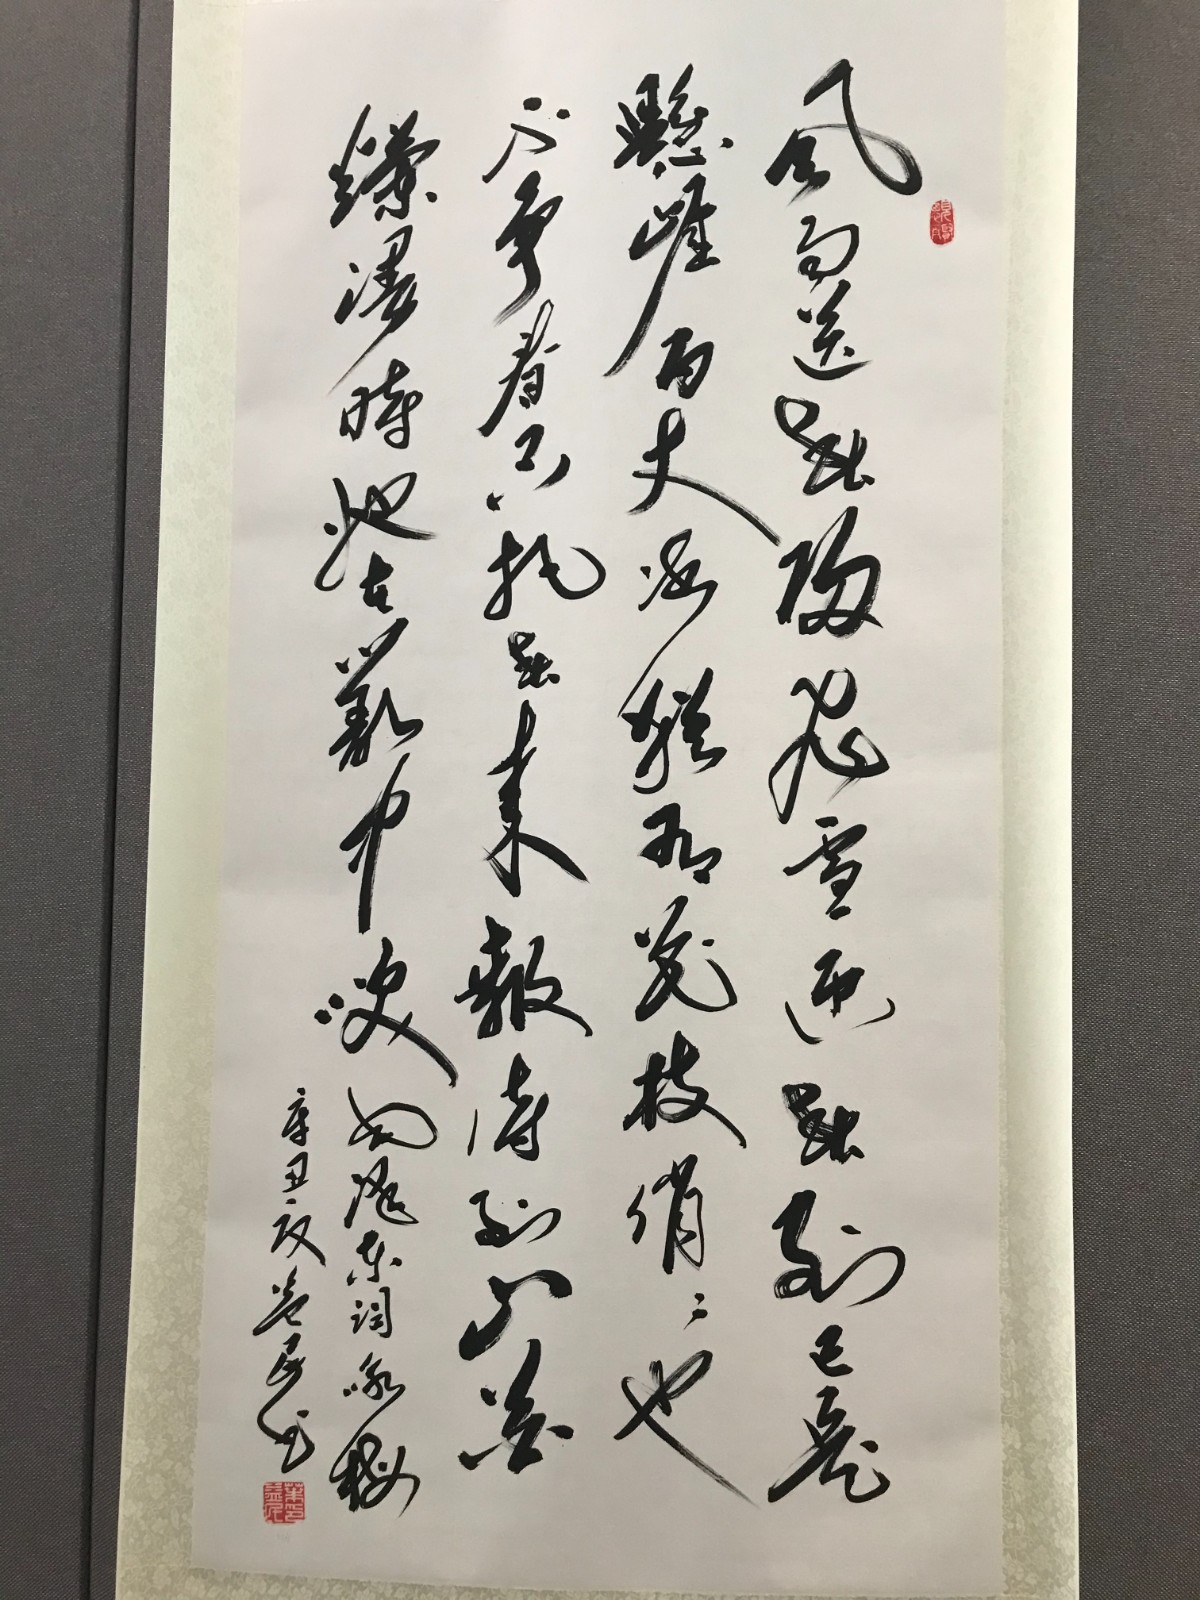 風雨送春歸飛雪迎春到已是
懸崖百丈冰猶有花枝俏々也
不爭春只把春來報待到山花
爛漫時她在叢中笑 毛澤東詞咏梅
辛丑夏益民书